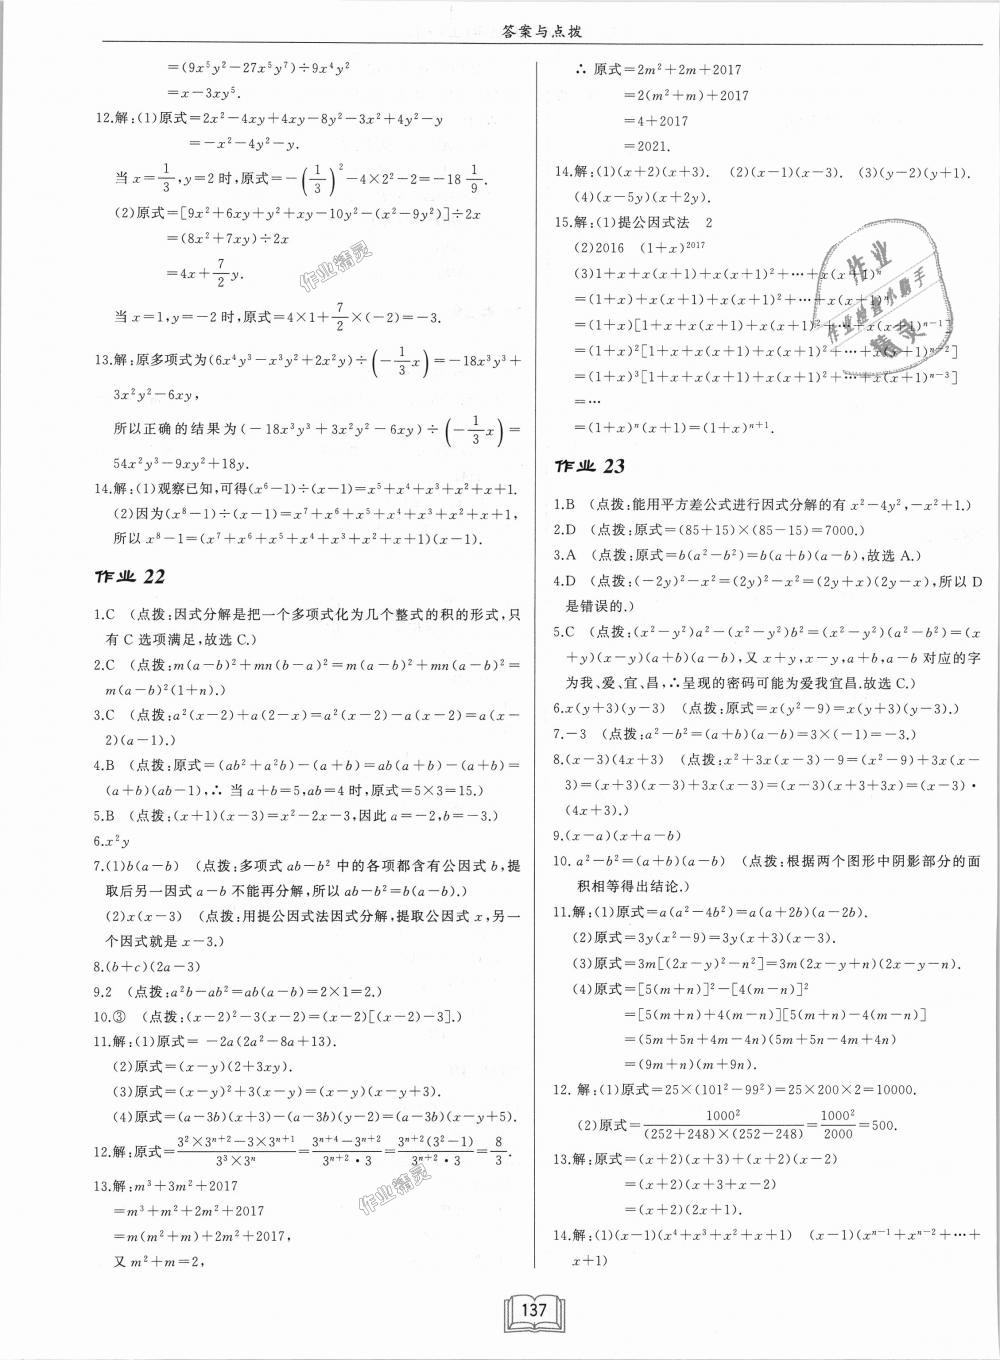 答案与点拨
=(9x⁵y²-27x⁵y⁷)÷9x⁴y²
=x-3xy⁵.
12.解:(1)原式=2x²-4xy+4xy-8y²-3x²+4y²-y
=-x²-4y²-y.
当x=1/3,y=2时,原式=-(1/3)²-4×2²-2=-18 1/9.
(2)原式=[9x²+6xy+y²+xy-10y²-(x²-9y²)]÷2x
=(8x²+7xy)÷2x
=4x+7/2y.
当x=1,y=-2时,原式=4×1+7/2×(-2)=-3.
13.解:原多项式为(6x⁴y³-x³y²+2x²y)÷(-1/3x)=-18x³y³+
3x²y²-6xy,
所以正确的结果为(-18x³y³+3x²y²-6xy)÷(-1/3x)=
54x²y³-9xy²+18y.
14.解:(1)观察已知,可得(x⁶-1)÷(x-1)=x⁵+x⁴+x³+x²+x+1.
(2)因为(x⁸-1)÷(x-1)=x⁷+x⁶+x⁵+x⁴+x³+x²+x+1,
所以x⁸-1=(x⁷+x⁶+x⁵+x⁴+x³+x²+x+1)(x-1).
作业 22
1.C (点拨:因式分解是把一个多项式化为几个整式的积的形式,只
有C选项满足,故选C.)
2.C (点拨:m(a-b)²+mn(b-a)²=m(a-b)²+mn(a-b)²=
m(a-b)²(1+n).)
3.C (点拨:a²(x-2)+a(2-x)=a²(x-2)-a(x-2)=a(x-
2)(a-1).)
4.B (点拨:原式=(ab²+a²b)-(a+b)=ab(a+b)-(a+b)=
(a+b)(ab-1),∴当a+b=5,ab=4时,原式=5×3=15.)
5.B (点拨:(x+1)(x-3)=x²-2x-3,因此a=-2,b=-3.)
6.x²y
7.(1)b(a-b) (点拨:多项式ab-b²中的各项都含有公因式b,提
取后另一因式a-b不能再分解,所以ab-b²=b(a-b).)
(2)x(x-3) (点拨:用提公因式法因式分解,提取公因式x,另一
个因式就是x-3.)
8.(b+c)(2a-3)
9.2 (点拨:a²b-ab²=ab(a-b)=2×1=2.)
10.③ (点拨:(x-2)²-3(x-2)=(x-2)[(x-2)-3].)
11.解:(1)原式=-2a(2a²-8a+13).
(2)原式=(x-y)(2+3xy).
(3)原式=(x-y)²+3(x-y)=(x-y)(x-y+3).
(4)原式=(a-3b)(x+3)-(a-3b)(y-2)=(a-3b)(x-y+5).
12.解:原式=(3²×3ⁿ⁺²-3×3ⁿ⁺¹)/(3³×3ⁿ)=(3ⁿ⁺⁴-3ⁿ⁺²)/(3ⁿ⁺²·3)=(3ⁿ⁺²(3²-1))/(3ⁿ⁺²·3)=8/3.
13.解:m³+3m²+2017
=m³+m²+2m²+2017
=m(m²+m)+2m²+2017,
又m²+m=2,
∴原式=2m²+2m+2017
=2(m²+m)+2017
=4+2017
=2021.
14.解:(1)(x+2)(x+3). (2)(x-1)(x-3). (3)(y-2)(y+1).
(4)(x-5y)(x+2y).
15.解:(1)提公因式法 2
(2)2016 (1+x)²⁰¹⁷
(3)1+x+x(x+1)+x(x+1)²+…+x(x+1)ⁿ
=(1+x)+x(x+1)+x(x+1)²+…+x(x+1)ⁿ
=(1+x)[1+x+x(x+1)+x(x+1)²+…+x(x+1)ⁿ⁻¹]
=(1+x)²[1+x+x(x+1)+x(x+1)²+…+x(x+1)ⁿ⁻²]
=(1+x)³[1+x+x(x+1)+x(x+1)²+…+x(x+1)ⁿ⁻³]
=…
=(1+x)ⁿ(x+1)=(1+x)ⁿ⁺¹.
作业 23
1.B (点拨:能用平方差公式进行因式分解的有x²-4y²,-x²+1.)
2.D (点拨:原式=(85+15)×(85-15)=7000.)
3.A (点拨:原式=b(a²-b²)=b(a+b)(a-b),故选A.)
4.D (点拨:(-2y)²-x²=(2y)²-x²=(2y+x)(2y-x),所以D
是错误的.)
5.C (点拨:(x²-y²)a²-(x²-y²)b²=(x²-y²)(a²-b²)=(x
+y)(x-y)(a+b)(a-b),又x+y,x-y,a+b,a-b对应的字
为我、爱、宜、昌,∴呈现的密码可能为爱我宜昌.故选C.)
6.x(y+3)(y-3) (点拨:原式=x(y²-9)=x(y+3)(y-3).)
7.-3 (点拨:a²-b²=(a+b)(a-b)=3×(-1)=-3.)
8.(x-3)(4x+3) (点拨:x²+3x(x-3)-9=(x²-9)+3x(x-
3)=(x+3)(x-3)+3x(x-3)=(x-3)(x+3+3x)=(x-3)·
(4x+3).)
9.(x-a)(x+a-b)
10.a²-b²=(a+b)(a-b) (点拨:根据两个图形中阴影部分的面
积相等得出结论.)
11.解:(1)原式=a(a²-4b²)=a(a+2b)(a-2b).
(2)原式=3y(x²-9)=3y(x+3)(x-3).
(3)原式=3m[(2x-y)²-n²]=3m(2x-y+n)(2x-y-n).
(4)原式=[5(m+n)]²-[4(m-n)]²
=[5(m+n)+4(m-n)][5(m+n)-4(m-n)]
=(5m+5n+4m-4n)(5m+5n-4m+4n)
=(9m+n)(m+9n).
12.解:(1)原式=25×(101²-99²)=25×200×2=10000.
(2)原式=1000²/((252+248)×(252-248))=1000²/2000=500.
13.解:原式=(x+2)(x+3)+(x+2)(x-2)
=(x+2)(x+3+x-2)
=(x+2)(2x+1).
14.解:(1)(x-1)(x⁴+x³+x²+x+1) (x-1)(xⁿ⁻¹+xⁿ⁻²+…+
x+1)
137
作业精灵
作业
作业检查小助手
精灵
作业精灵